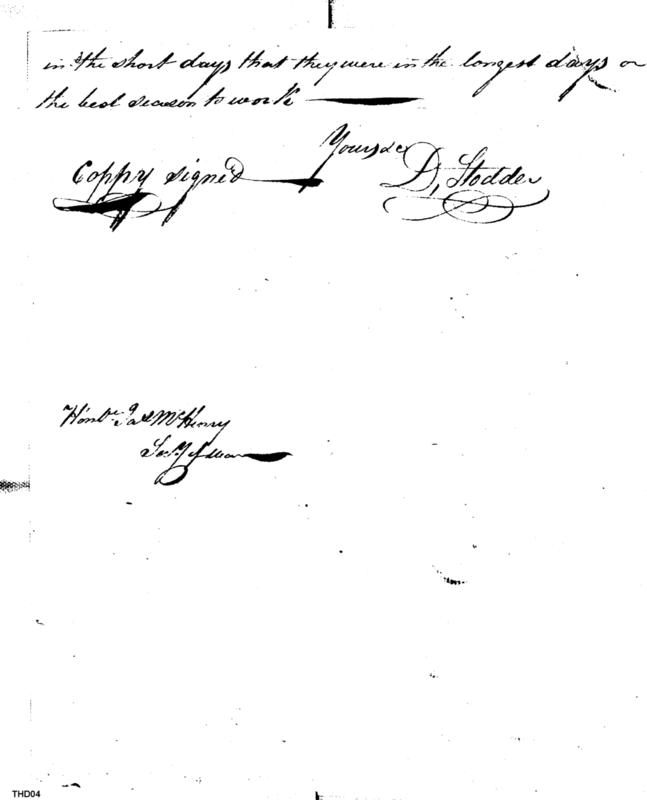 in the short days that they were in the longest days or
the best season to work
Yours &c
Coppy signed D, Stodder
Honble Jas McHenry
Secy of War
THD04